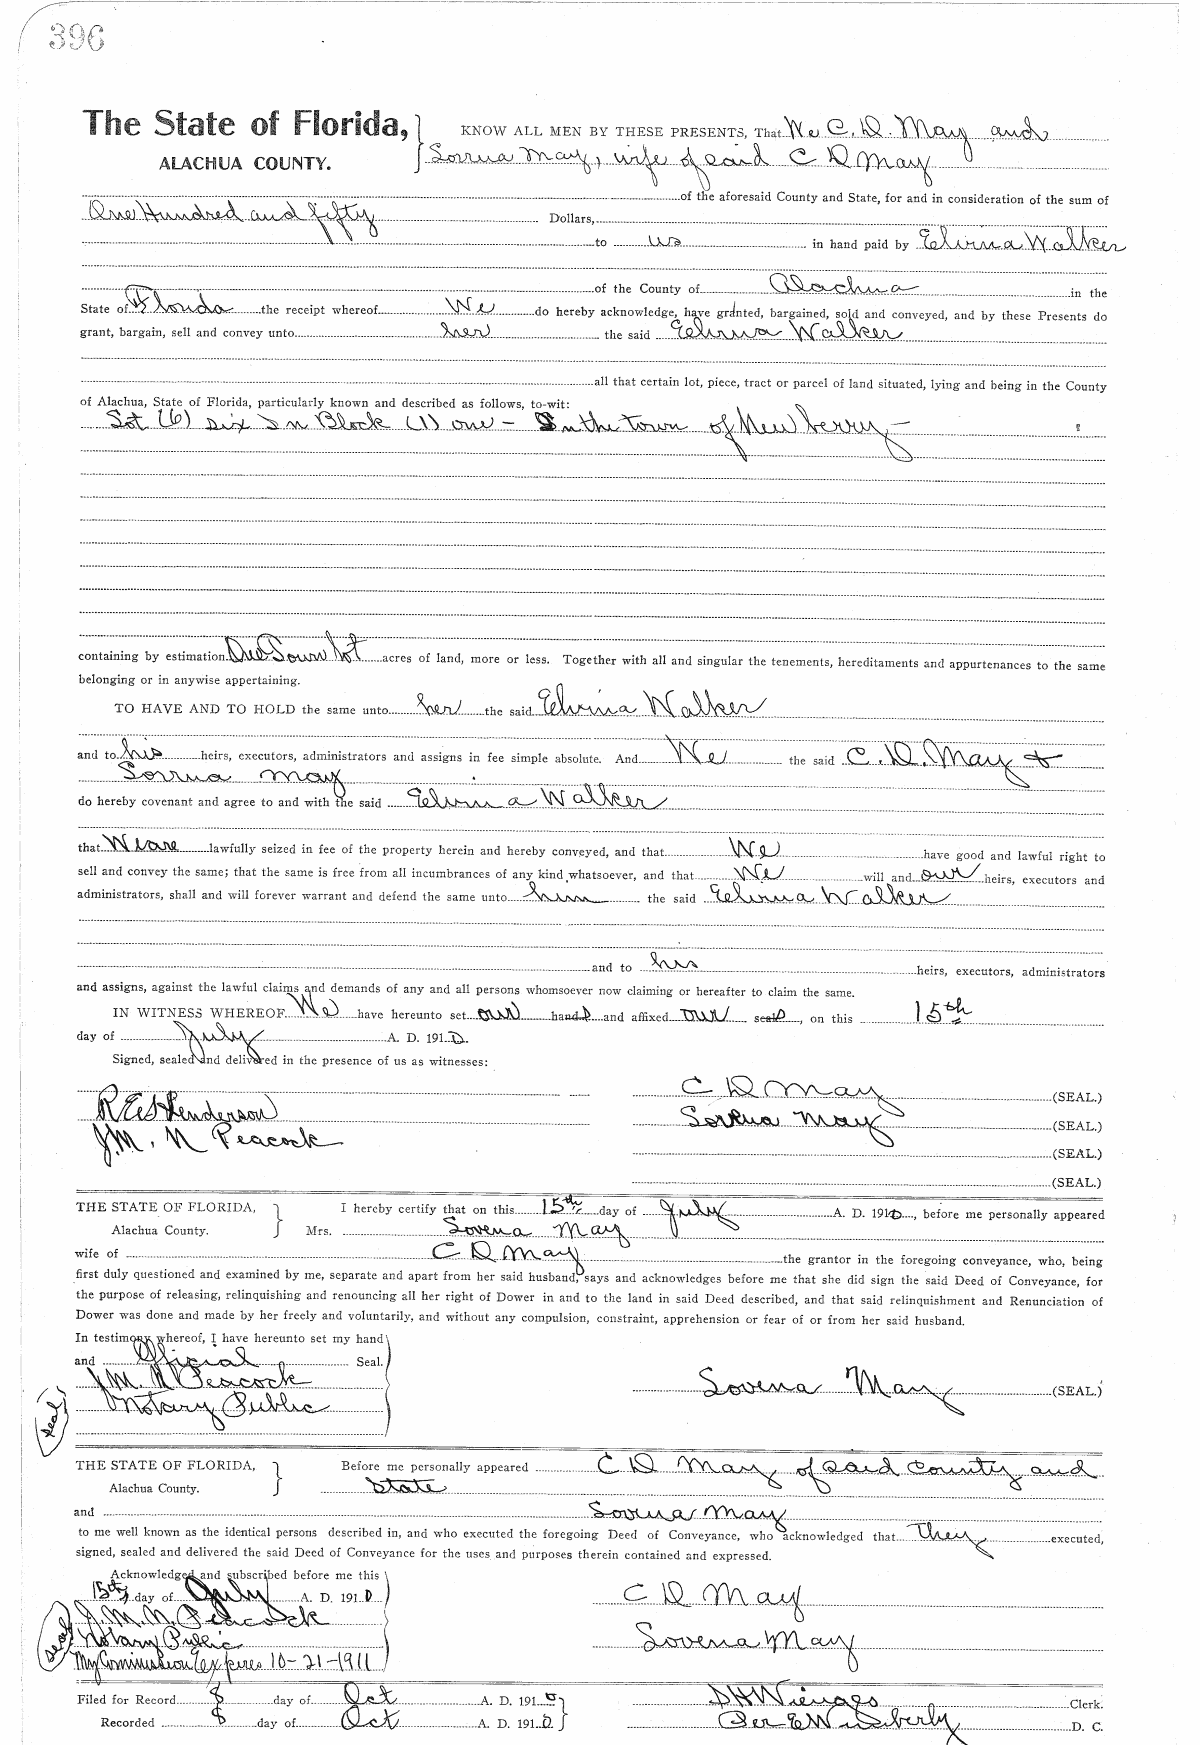 396
The State of Florida, KNOW ALL MEN BY THESE PRESENTS, That We C. D. May and
ALACHUA COUNTY. Sovena May, wife of said C D May
of the aforesaid County and State, for and in consideration of the sum of
One Hundred and fifty Dollars,
to us in hand paid by Elvina Walker
of the County of Alachua in the
State of Florida the receipt whereof We do hereby acknowledge, have granted, bargained, sold and conveyed, and by these Presents do
grant, bargain, sell and convey unto her the said Elvina Walker
all that certain lot, piece, tract or parcel of land situated, lying and being in the County
of Alachua, State of Florida, particularly known and described as follows, to-wit:
Lot (6) six In Block (1) one - In the town of Newberry -
containing by estimation One Town Lot acres of land, more or less. Together with all and singular the tenements, hereditaments and appurtenances to the same
belonging or in anywise appertaining.
TO HAVE AND TO HOLD the same unto her the said Elvina Walker
and to his heirs, executors, administrators and assigns in fee simple absolute. And We the said C. D. May &
Sovena May
do hereby covenant and agree to and with the said Elvina Walker
that We are lawfully seized in fee of the property herein and hereby conveyed, and that We have good and lawful right to
sell and convey the same; that the same is free from all incumbrances of any kind whatsoever, and that We will and our heirs, executors and
administrators, shall and will forever warrant and defend the same unto him the said Elvina Walker
and to his heirs, executors, administrators
and assigns, against the lawful claims and demands of any and all persons whomsoever now claiming or hereafter to claim the same.
IN WITNESS WHEREOF We have hereunto set our hands and affixed our seals, on this 15th
day of July A. D. 1910.
Signed, sealed and delivered in the presence of us as witnesses:
C D May (SEAL.)
R E Henderson Sovena May (SEAL.)
J. M. N Peacock
(SEAL.)
(SEAL.)
THE STATE OF FLORIDA, I hereby certify that on this 15th day of July A. D. 1910, before me personally appeared
Alachua County. Mrs. Sovena May
wife of C D May the grantor in the foregoing conveyance, who, being
first duly questioned and examined by me, separate and apart from her said husband, says and acknowledges before me that she did sign the said Deed of Conveyance, for
the purpose of releasing, relinquishing and renouncing all her right of Dower in and to the land in said Deed described, and that said relinquishment and Renunciation of
Dower was done and made by her freely and voluntarily, and without any compulsion, constraint, apprehension or fear of or from her said husband.
In testimony whereof, I have hereunto set my hand
and Official Seal.
J. M. N Peacock Sovena May (SEAL.)
Notary Public
(seal)
THE STATE OF FLORIDA, Before me personally appeared C D May of said County and
Alachua County. State
and Sovena May
to me well known as the identical persons described in, and who executed the foregoing Deed of Conveyance, who acknowledged that They executed,
signed, sealed and delivered the said Deed of Conveyance for the uses and purposes therein contained and expressed.
Acknowledged and subscribed before me this
15th day of July A. D. 1910 C D May
J. M. N. Peacock
(seal) Notary Public Sovena May
My Commission Expires 10-21-1911
Filed for Record 8 day of Oct A. D. 1910 D H Wienges Clerk.
Recorded 8 day of Oct A. D. 1910. Per E Wimberly D. C.